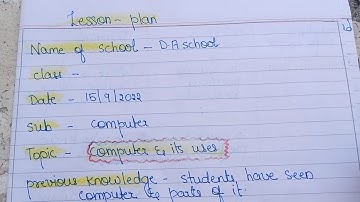 Lesson - plan
Name of school - D.A school
class -
Date - 15/9/2022
sub - computer
Topic - computer & its uses
previous knowledge - students have seen
computer & parts of it.